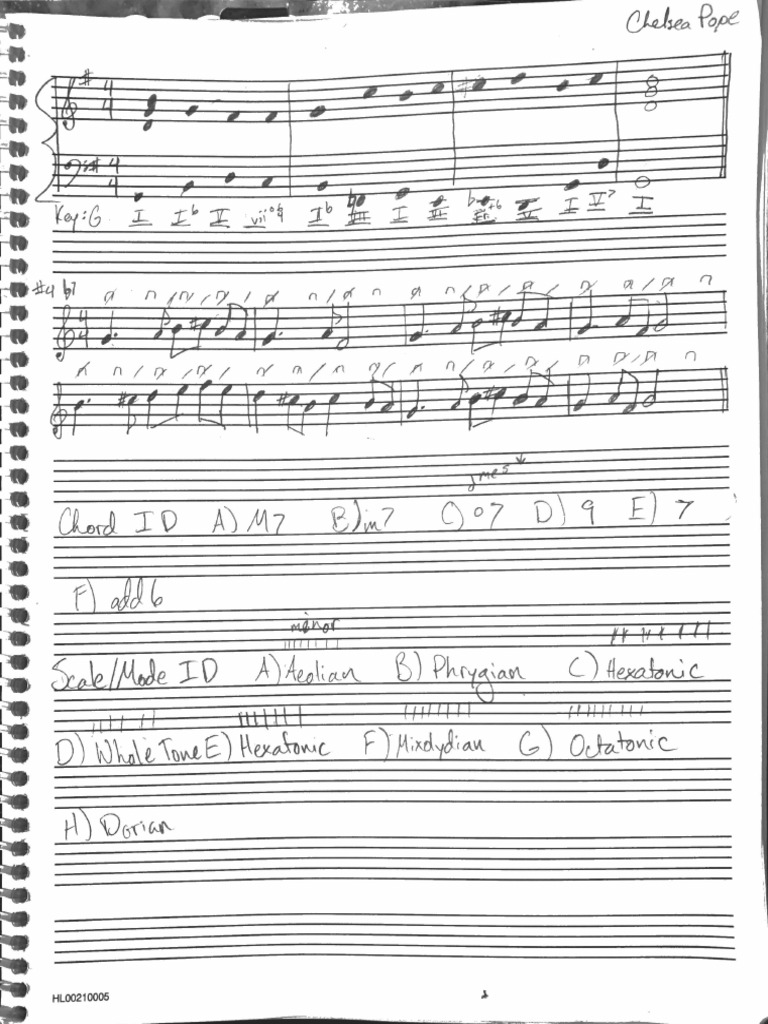 Chelsea Pope
# 4 4
# 4 4
Key: G I I6 V I6 I I V7 I
#4 b7
4 4
Chord ID A) M7 B) m7 C) °7 D) 9 E) 7
F) add 6
minor
Scale/Mode ID A) Aeolian B) Phrygian C) Hexatonic
D) Whole Tone E) Hexatonic F) Mixdydian G) Octatonic
H) Dorian
HL00210005